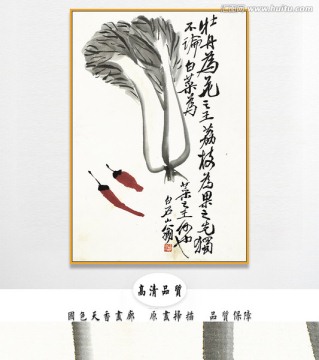 牡丹為花之王荔枝為果之先獨
不論白菜為
菜之王何也
白石山翁
www.huitu.com
高清品質
國色天香畫廊 原畫掃描 品質保障